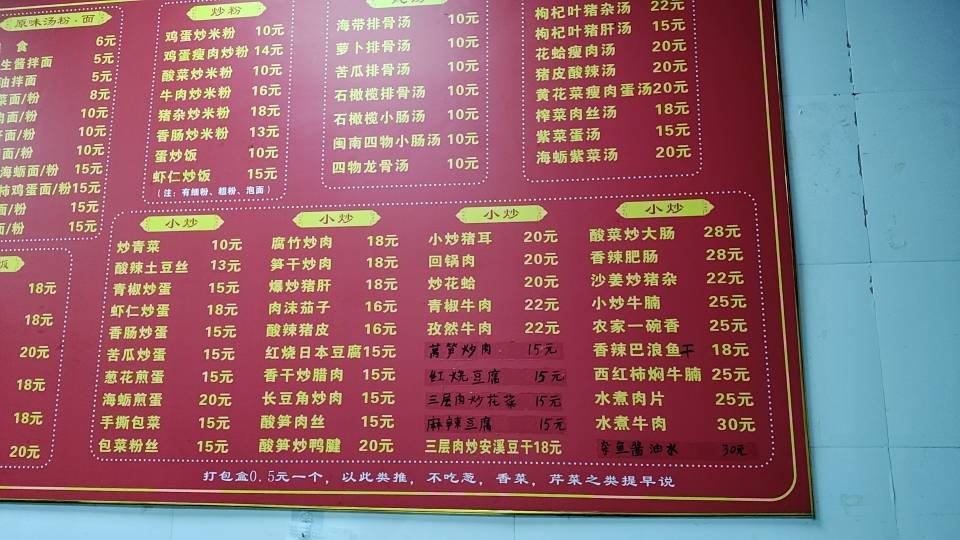 原味汤粉.面
食 6元
生酱拌面 5元
油拌面 5元
菜面/粉 8元
面/粉 10元
面/粉 10元
面/粉 10元
海蛎面/粉 15元
柿鸡蛋面/粉 15元
面/粉 15元
面/粉 15元
炒粉
鸡蛋炒米粉 10元
鸡蛋瘦肉炒粉 14元
酸菜炒米粉 10元
牛肉炒米粉 16元
猪杂炒米粉 18元
香肠炒米粉 13元
蛋炒饭 10元
虾仁炒饭 15元
(注:有细粉、粗粉、泡面)
海带排骨汤 10元
萝卜排骨汤 10元
苦瓜排骨汤 10元
石橄榄排骨汤 10元
石橄榄小肠汤 10元
闽南四物小肠汤 10元
四物龙骨汤 10元
枸杞叶猪杂汤 22元
枸杞叶猪肝汤 15元
花蛤瘦肉汤 20元
猪皮酸辣汤 20元
黄花菜瘦肉蛋汤 20元
榨菜肉丝汤 18元
紫菜蛋汤 15元
海蛎紫菜汤 20元
饭
18元
18元
20元
18元
18元
20元
小炒
炒青菜 10元
酸辣土豆丝 13元
青椒炒蛋 15元
虾仁炒蛋 18元
香肠炒蛋 15元
苦瓜炒蛋 15元
葱花煎蛋 15元
海蛎煎蛋 20元
手撕包菜 15元
包菜粉丝 15元
小炒
腐竹炒肉 18元
笋干炒肉 18元
爆炒猪肝 18元
肉沫茄子 16元
酸辣猪皮 16元
红烧日本豆腐 15元
香干炒腊肉 15元
长豆角炒肉 15元
酸笋肉丝 15元
酸笋炒鸭腱 20元
小炒
小炒猪耳 20元
回锅肉 20元
炒花蛤 20元
青椒牛肉 22元
孜然牛肉 22元
莴笋炒肉 15元
红烧豆腐 15元
三层肉炒花菜 15元
麻辣豆腐 15元
三层肉炒安溪豆干 18元
小炒
酸菜炒大肠 28元
香辣肥肠 28元
沙姜炒猪杂 22元
小炒牛腩 25元
农家一碗香 25元
香辣巴浪鱼干 18元
西红柿焖牛腩 25元
水煮肉片 25元
水煮牛肉 30元
杂鱼酱油水 30元
打包盒0.5元一个,以此类推,不吃葱,香菜,芹菜之类提早说